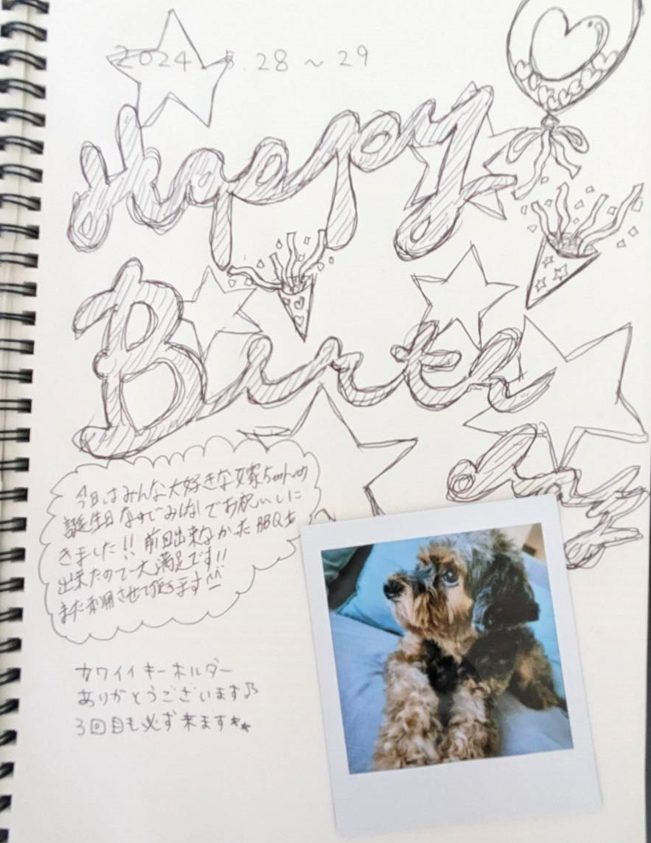 2024 5.28〜29
Happy
Birth
day
今日はみんな大好きな嫁ちゃんの
誕生日なのでみんなでお祝いしに
きました!! 前回出来なかったBBQも
出来たので大満足です!!
また利用させて頂きます^^
カワイイキーホルダー
ありがとうございます♪
3回目も必ず来ます★★